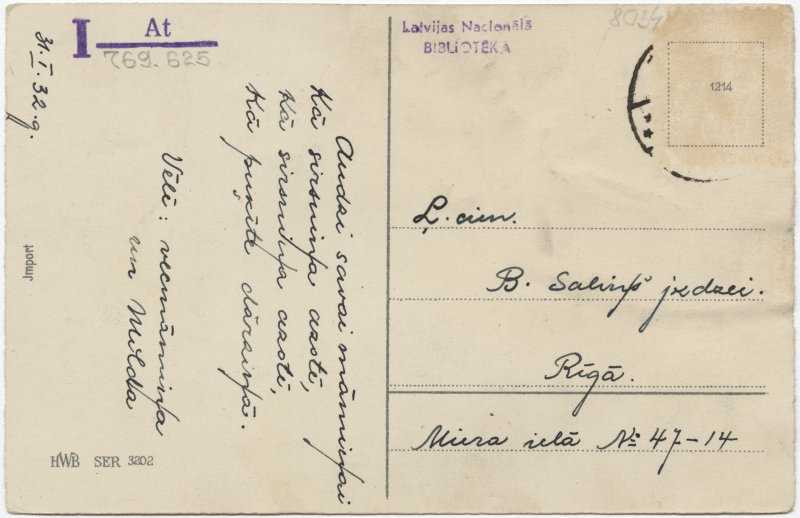 I At
769.625
Latvijas Nacionālā
BIBLIOTĒKA
8034
1214
31.I.32.g.
Audzi savai māmiņai
Kā sirsniņa azotē,
Kā sirsniņa azotē,
Kā puķīte dārziņā.
Vēlē: vecmāmiņa
un Milda
Import
HWB SER 3202
Ļ. cien.
B. Saliņš jedzei.
Rīgā.
Miera ielā № 47-14